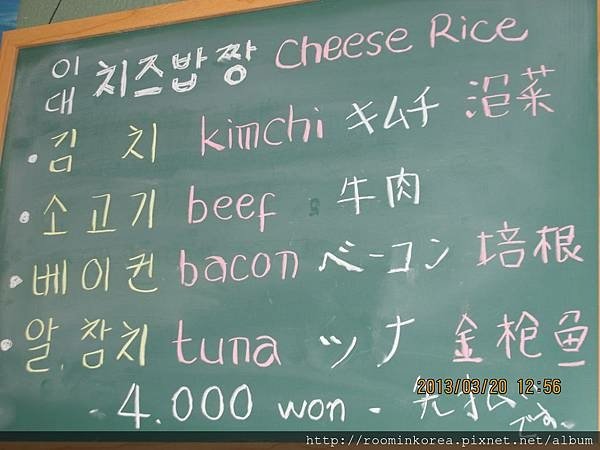 이대 치즈밥짱 Cheese Rice
· 김치 kimchi キムチ 泡菜
· 소고기 beef 牛肉
· 베이컨 bacon ベーコン 培根
· 알.참치 tuna ツナ 金枪鱼
- 4.000 won - 先払いです。
2013/03/20 12:56
http://roominkorea.pixnet.net/album